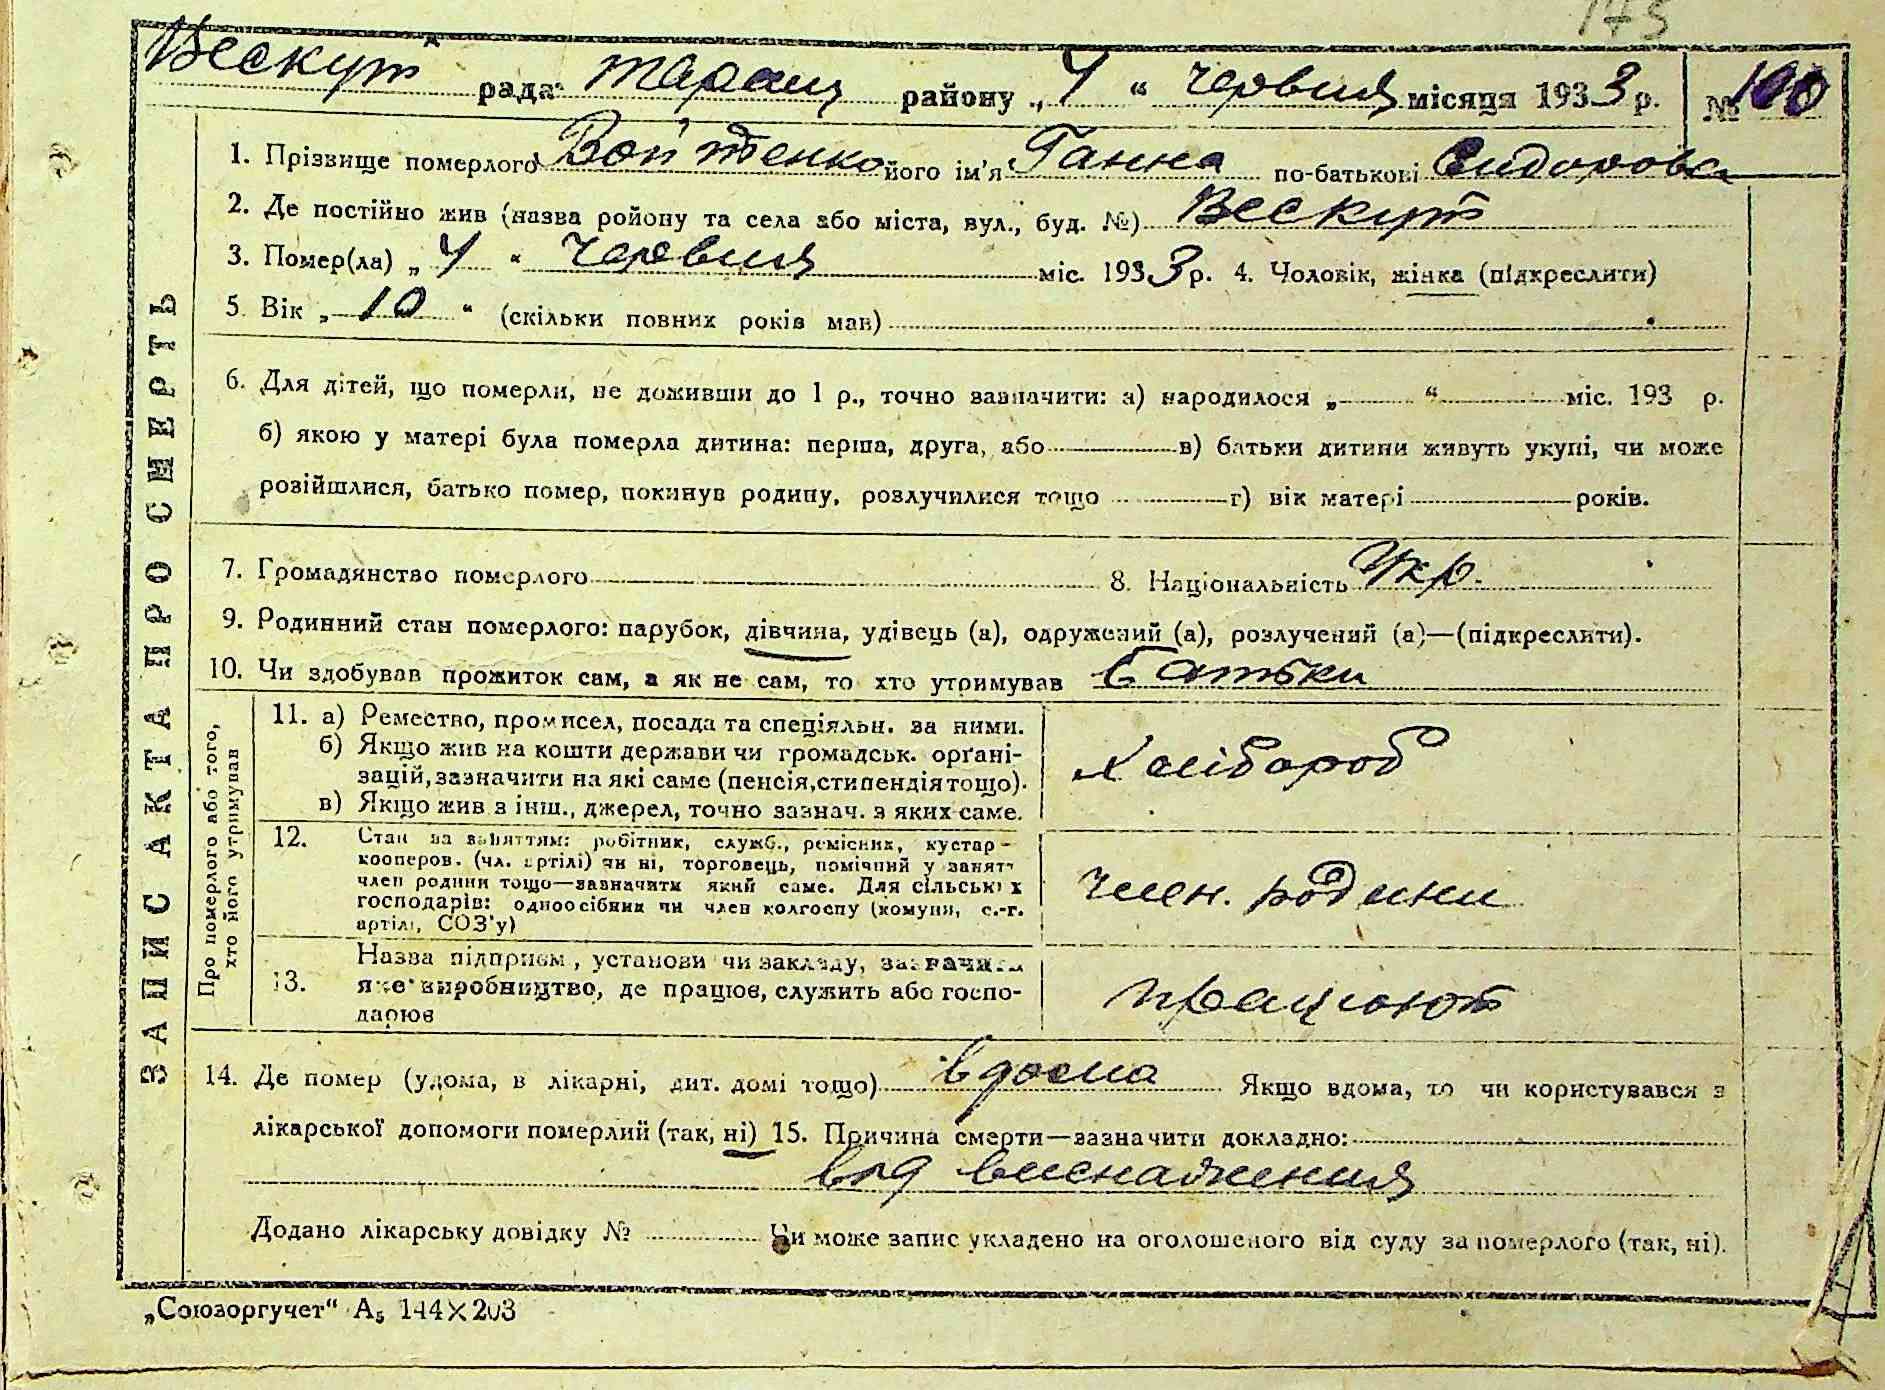 175
Вескут рада Таращ району „ 4 “ червня місяця 1933 р. № 100
1. Прізвище померлого Войтенко його ім'я Ганна по-батькові Сидоровна
2. Де постійно жив (назва ройону та села або міста, вул., буд. №) Вескут
3. Помер(ла) „ 4 “ червня міс. 1933 р. 4. Чоловік, жінка (підкреслити)
5. Вік „ 10 “ (скільки повних років мав)
6. Для дітей, що померли, не доживши до 1 р., точно зазначити: а) народилося „ “ міс. 193 р.
б) якою у матері була померла дитина: перша, друга, або в) батьки дитини живуть укупі, чи може
розійшлися, батько помер, покинув родину, розлучилися тощо г) вік матері років.
7. Громадянство померлого 8. Національність Укр.
9. Родинний стан померлого: парубок, дівчина, удівець (а), одружений (а), розлучений (а)—(підкреслити).
10. Чи здобував прожиток сам, а як не сам, то хто утримував батьки
11. а) Ремество, промисел, посада та спеціяльн. за ними.
б) Якщо жив на кошти держави чи громадськ. орґані-
зацій, зазначити на які саме (пенсія, стипендія тощо).
в) Якщо жив з інш., джерел, точно зазнач. з яких саме.
Хлібороб
12. Стан за заняттям: робітник, служб., ремісник, кустар-
кооперов. (чл. артілі) чи ні, торговець, помічний у занятт
член родини тощо—зазначити який саме. Для сільських
господарів: одноосібник чи член колгоспу (комуни, с.-г.
артілі, СОЗ'у)
член. родини
13. Назва підприєм, установи чи закладу, зазначити
яке виробництво, де працює, служить або госпо-
дарює
працюют
14. Де помер (удома, в лікарні, дит. домі тощо) вдома Якщо вдома, то чи користувався з
лікарської допомоги померлий (так, ні) 15. Причина смерти—зазначити докладно:
від виснаження
Додано лікарську довідку № Чи може запис укладено на оголошеного від суду за померлого (так, ні).
„Союзоргучет“ А5 144×203
ЗАПИС АКТА ПРО СМЕРТЬ
Про померлого або того,
хто його утримував